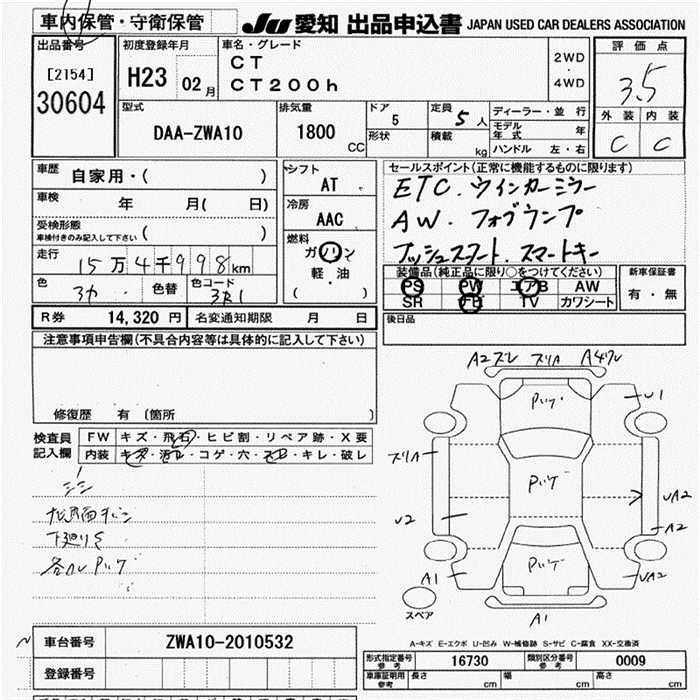 車内保管・守衛保管
JU 愛知 出品申込書 JAPAN USED CAR DEALERS ASSOCIATION
出品番号
[2154]
30604
初度登録年月
H23 02月
車名・グレード
CT
CT200h
2WD
・
4WD
評価点
3.5
外装 内装
C C
型式
DAA-ZWA10
排気量
1800
CC
ドア
5
形状
定員
5人
積載
kg
ディーラー・並行
モデル年式 年
ハンドル 左・右
車歴
自家用・( )
車検
年 月( 日)
受検形態
車検付きのみ記入して下さい ( )
走行
15万4千998km
色
色替
色コード
シフト
AT
冷房
AAC
燃料
ガソリン
軽・油
( )
セールスポイント(正常に機能するものに限ります)
ETC.ウインカーミラー
AW.フォグランプ
プッシュスタート.スマートキー
装備品(純正品に限り○をつけてください)
PS PW エアB AW
SR TV カワシート
新車保証書
有・無
R券 14,320円 名変通知期限 月 日
後日品
注意事項申告欄(不具合内容等は具体的に記入して下さい)
修復歴 有 〔箇所 〕
検査員
記入欄
FW キズ・飛石・ヒビ割・リペア跡・X要
内装 キズ・汚れ・コゲ・穴・スレ・キレ・破レ
A2
U1
U2
UA2
A2
A1
UA2
A1
スペア
A-キズ E-エクボ U-凹み W-補修跡 S-サビ C-腐食 XX-交換済
車台番号 ZWA10-2010532
登録番号
形式指定番号
参考
16730
類別区分番号
参考
0009
車庫証明用
参考
長さ cm 幅 cm 高さ cm